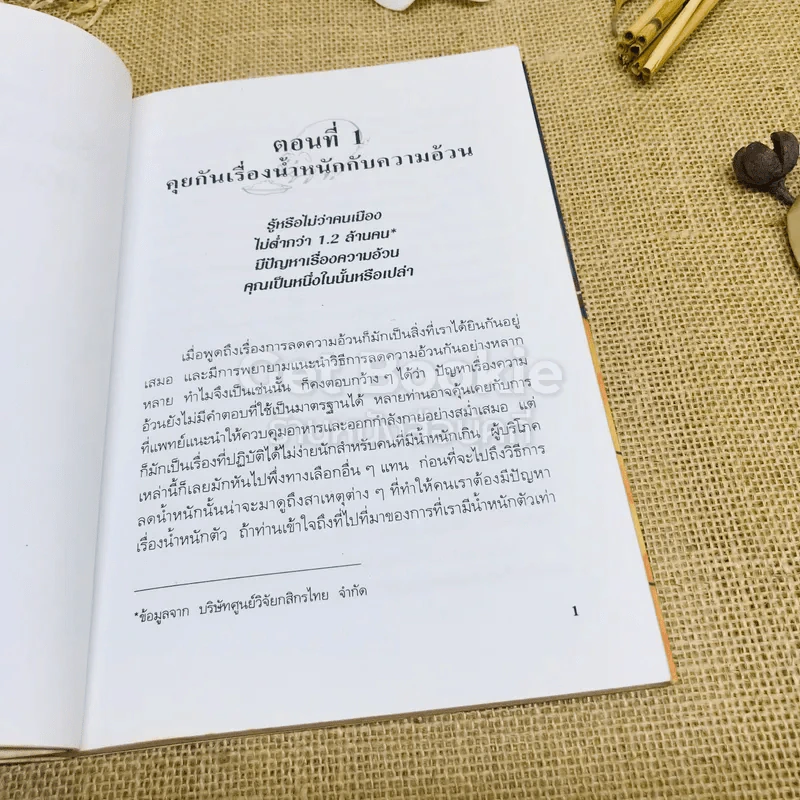 ตอนที่ 1
คุยกันเรื่องน้ำหนักกับความอ้วน
รู้หรือไม่ว่าคนเมือง
ไม่ต่ำกว่า 1.2 ล้านคน*
มีปัญหาเรื่องความอ้วน
คุณเป็นหนึ่งในนั้นหรือเปล่า
เมื่อพูดถึงเรื่องการลดความอ้วนก็มักเป็นสิ่งที่เราได้ยินกันอยู่
เสมอ และมีการพยายามแนะนำวิธีการลดความอ้วนกันอย่างหลาก
หลาย ทำไมจึงเป็นเช่นนั้น ก็คงตอบกว้าง ๆ ได้ว่า ปัญหาเรื่องความ
อ้วนยังไม่มีคำตอบที่ใช้เป็นมาตรฐานได้ หลายท่านอาจคุ้นเคยกับการ
ที่แพทย์แนะนำให้ควบคุมอาหารและออกกำลังกายอย่างสม่ำเสมอ แต่
ก็มักเป็นเรื่องที่ปฏิบัติได้ไม่ง่ายนักสำหรับคนที่มีน้ำหนักเกิน ผู้บริโภค
เหล่านี้ก็เลยมักหันไปพึ่งทางเลือกอื่น ๆ แทน ก่อนที่จะไปถึงวิธีการ
ลดน้ำหนักนั้นน่าจะมาดูถึงสาเหตุต่าง ๆ ที่ทำให้คนเราต้องมีปัญหา
เรื่องน้ำหนักตัว ถ้าท่านเข้าใจถึงที่ไปที่มาของการที่เรามีน้ำหนักตัวเท่า
*ข้อมูลจาก บริษัทศูนย์วิจัยกสิกรไทย จำกัด
1